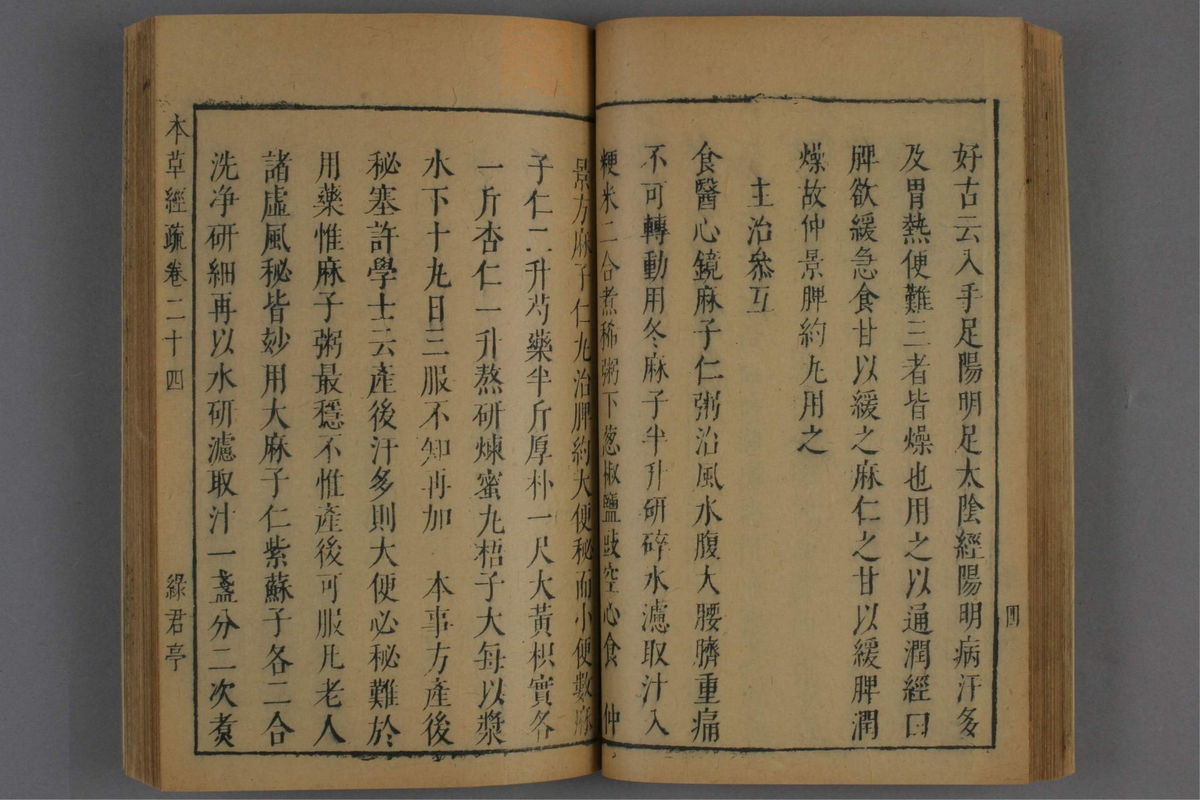 好古云入手足陽明足太陰經陽明病汗多
及胃熱便難三者皆燥也用之以通潤經曰
脾欲緩急食甘以緩之麻仁之甘以緩脾潤
燥故仲景脾約丸用之
主治叅互
食醫心鏡麻子仁粥治風水腹大腰臍重痛
不可轉動用冬麻子半升研碎水濾取汁入
粳米二合煮稀粥下葱椒鹽豉空心食 仲
景方麻子仁丸治脾約大便秘而小便數麻
子仁二升芍藥半斤厚朴一尺大黃枳實各
一斤杏仁一升熬研煉蜜丸梧子大每以漿
水下十丸日三服不知再加 本事方產後
秘塞許學士云產後汗多則大便必秘難於
用藥惟麻子粥最穩不惟產後可服凡老人
諸虛風秘皆妙用大麻子仁紫蘇子各二合
洗净研細再以水研濾取汁一盞分二次煑
本草經疏卷二十四
綠君亭